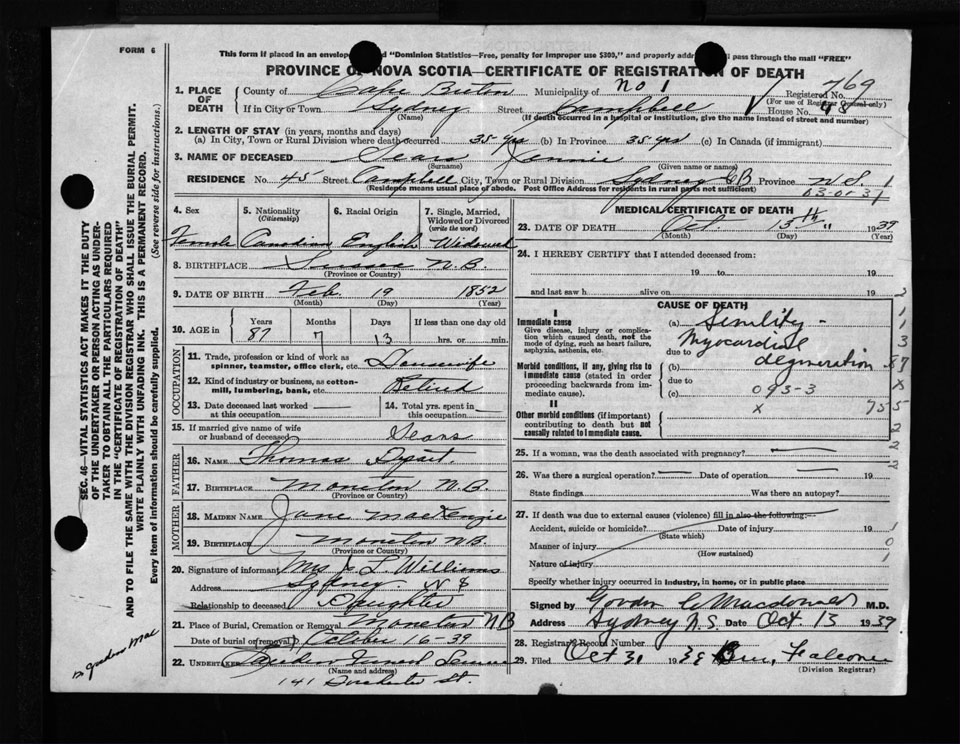 FORM 6
This form if placed in an envelope "Dominion Statistics—Free, penalty for improper use $300," and properly pass through the mail "FREE"
PROVINCE OF NOVA SCOTIA—CERTIFICATE OF REGISTRATION OF DEATH
1. PLACE OF DEATH County of Cape Breton Municipality of No 1 Registered No. 769
(For use of Registrar General only)
If in City or Town Sydney Street Campbell House No. 48
(Name) (If death occurred in a hospital or institution, give the name instead of street and number)
2. LENGTH OF STAY (in years, months and days)
(a) In City, Town or Rural Division where death occurred 35 yrs (b) In Province 35 yrs (c) In Canada (if immigrant)
3. NAME OF DECEASED Sears Jennie
(Surname) (Given name or names)
RESIDENCE No. 45 Street Campbell City, Town or Rural Division Sydney CB Province N.S. 1
(Residence means usual place of abode. Post Office Address for residents in rural parts not sufficient) 03-01-37
4. Sex 5. Nationality (Citizenship) 6. Racial Origin 7. Single, Married, Widowed or Divorced (write the word)
Female Canadian English Widowed
8. BIRTHPLACE Sussex N.B.
(Province or Country)
9. DATE OF BIRTH Feb. 19 1852
(Month) (Day) (Year)
10. AGE in Years Months Days If less than one day old
87 7 13 hrs. or min.
OCCUPATION
11. Trade, profession or kind of work as spinner, teamster, office clerk, etc. Housewife
12. Kind of industry or business, as cotton-mill, lumbering, bank, etc. Retired
13. Date deceased last worked at this occupation 14. Total yrs. spent in this occupation
15. If married give name of wife or husband of deceased Sears
FATHER
16. NAME Thomas Dysart.
17. BIRTHPLACE Moncton N.B.
(Province or Country)
MOTHER
18. MAIDEN NAME Jane MacKenzie
19. BIRTHPLACE Moncton N.B.
(Province or Country)
20. Signature of informant Mrs L Williams
Address Sydney. N S
Relationship to deceased Daughter
21. Place of Burial, Cremation or Removal Moncton N B
Date of burial or removal October 16-39
22. UNDERTAKER Funeral Service
(Name and address)
141 Dorchester St.
MEDICAL CERTIFICATE OF DEATH
23. DATE OF DEATH Oct. 13th 1939
(Month) (Day) (Year)
24. I HEREBY CERTIFY that I attended deceased from:
19 to 19
and last saw h alive on 19
CAUSE OF DEATH
I
Immediate cause
Give disease, injury or complication which caused death, not the mode of dying, such as heart failure, asphyxia, asthenia, etc.
(a) Senility -
Myocardial
due to
Morbid conditions, if any, giving rise to immediate cause (stated in order proceeding backwards from immediate cause).
(b) degeneration
due to
(c) 093-3
II
Other morbid conditions (if important) contributing to death but not causally related to immediate cause.
x
2
1
3
87
X
755
2
2
25. If a woman, was the death associated with pregnancy?
26. Was there a surgical operation? Date of operation 19
State findings Was there an autopsy?
27. If death was due to external causes (violence) fill in also the following:
Accident, suicide or homicide? Date of injury 19
(State which)
Manner of injury
(How sustained)
Nature of injury
1
0
1
Specify whether injury occurred in industry, in home, or in public place
Signed by Gordon C Macdonald M.D.
Address Sydney N.S. Date Oct 13 1939
28. Registrar's Record Number
29. Filed Oct 31 1939 Falconer
(Division Registrar)
SEC. 46—VITAL STATISTICS ACT MAKES IT THE DUTY
OF THE UNDERTAKER OR PERSON ACTING AS UNDERTAKER
TO OBTAIN ALL THE PARTICULARS REQUIRED
IN THE "CERTIFICATE OF REGISTRATION OF DEATH"
AND TO FILE THE SAME WITH THE DIVISION REGISTRAR WHO SHALL ISSUE THE BURIAL PERMIT.
WRITE PLAINLY WITH UNFADING INK. THIS IS A PERMANENT RECORD.
Every item of information should be carefully supplied. (See reverse side for instructions.)